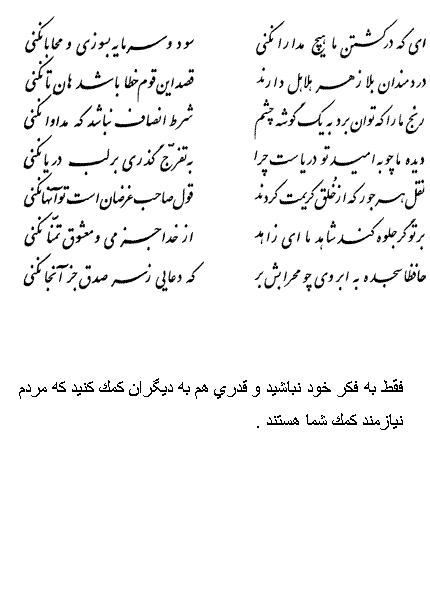 ای که در کشتن ما هیچ مدارا نکنی سود و سرمایه بسوزی و محابا نکنی
دردمندان بلا زهر هلاهل دارند قصد این قوم خطا باشد هان تا نکنی
رنج ما را که توان برد به یک گوشه چشم شرط انصاف نباشد که مداوا نکنی
دیده ما چو به امید تو دریاست چرا به تفرّج گذری بر لب دریا نکنی
نقل هر جور که از خُلق کریمت کردند قول صاحب غرضان است تو آنها نکنی
بر تو گر جلوه کند شاهد ما ای زاهد از خدا جز می و معشوق تمنّا نکنی
حافظا سجده به ابروی چو محرابش بر که دعایی ز سر صدق جز آنجا نکنی
فقط به فکر خود نباشید و قدري هم به دیگران کمك کنید که مردم
نیازمند کمك شما هستند .